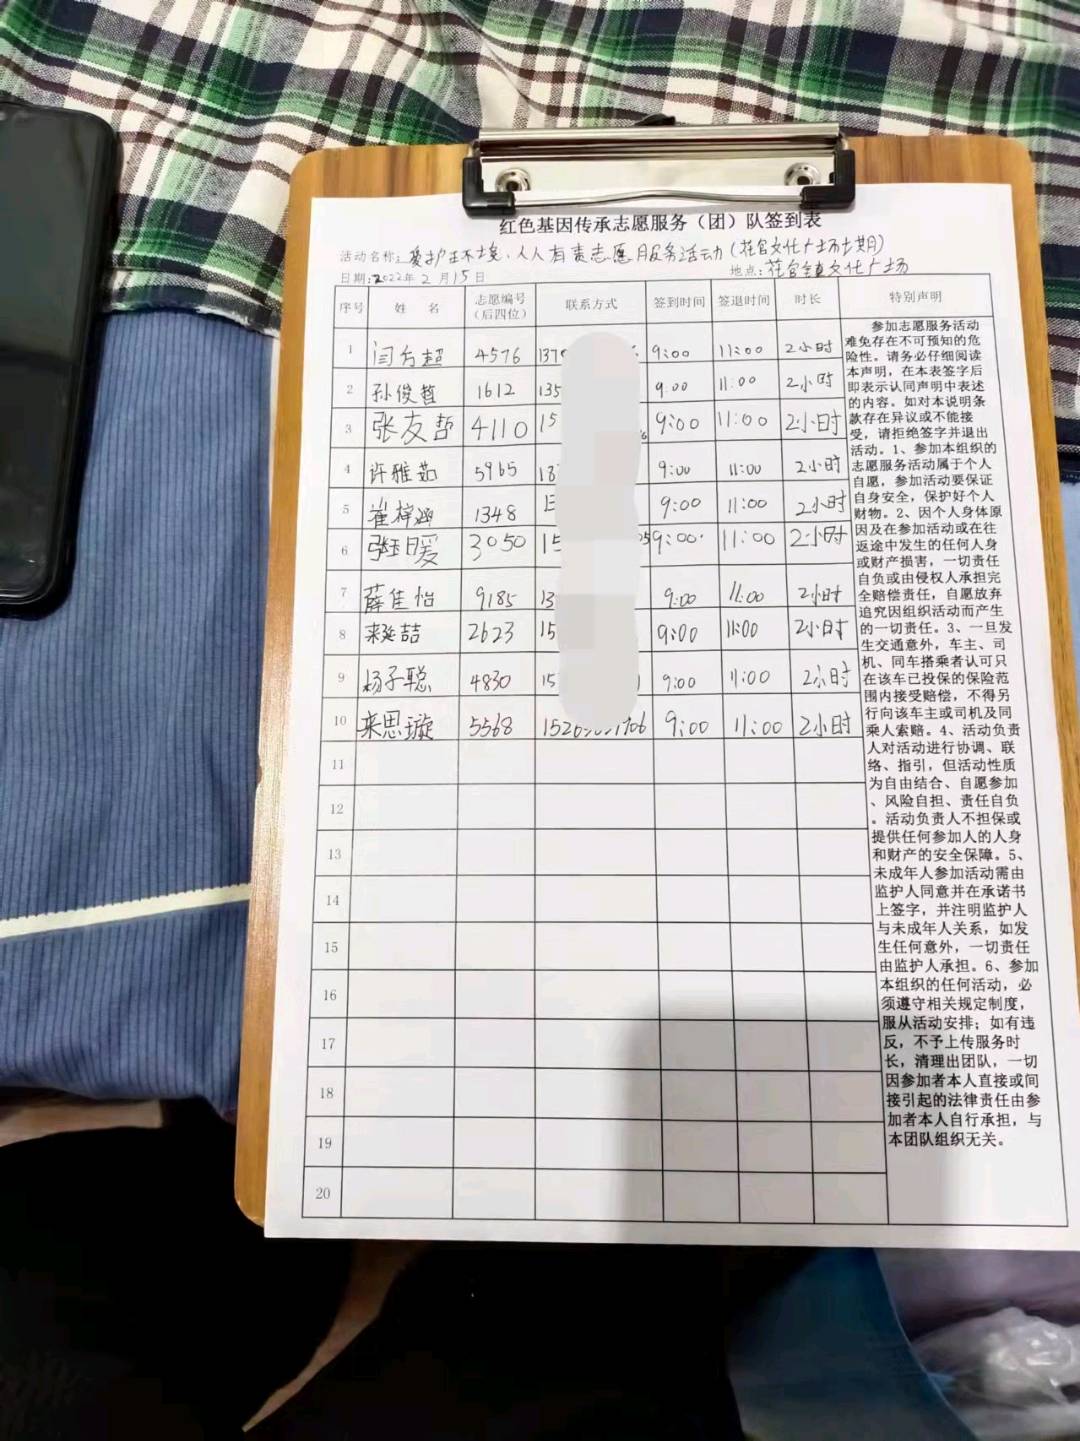 红色基因传承志愿服务（团）队签到表
活动名称：爱护环境、人人有责志愿服务活动（花官文化广场七期）
日期：2022年2月15日 地点：花官镇文化广场
序号 姓名 志愿编号（后四位） 联系方式 签到时间 签退时间 时长 特别声明
1 闫方超 4576 137 6 9:00 11:00 2小时
2 孙俊哲 1612 135 9:00 11:00 2小时
3 张友哲 4110 15 9:00 11:00 2小时
4 许雅茹 5965 18 9:00 11:00 2小时
5 崔梓涵 1348 9:00 11:00 2小时
6 张钰暖 3050 15 5 9:00 11:00 2小时
7 薛佳怡 9185 13 9:00 11:00 2小时
8 来延喆 2623 15 9:00 11:00 2小时
9 杨子聪 4830 15 1 9:00 11:00 2小时
10 来思璇 5568 1526 706 9:00 11:00 2小时
11
12
13
14
15
16
17
18
19
20
参加志愿服务活动
难免存在不可预知的危
险性。请务必仔细阅读
本声明，在本表签字后
即表示认同声明中表述
的内容。如对本说明条
款存在异议或不能接
受，请拒绝签字并退出
活动。1、参加本组织的
志愿服务活动属于个人
自愿，参加活动要保证
自身安全，保护好个人
财物。2、因个人身体原
因及在参加活动或在往
返途中发生的任何人身
或财产损害，一切责任
自负或由侵权人承担完
全赔偿责任，自愿放弃
追究因组织活动而产生
的一切责任。3、一旦发
生交通意外，车主、司
机、同车搭乘者认可只
在该车已投保的保险范
围内接受赔偿，不得另
行向该车主或司机及同
乘人索赔。4、活动负责
人对活动进行协调、联
络、指引，但活动性质
为自由结合、自愿参加
、风险自担、责任自负
。活动负责人不担保或
提供任何参加人的人身
和财产的安全保障。5、
未成年人参加活动需由
监护人同意并在承诺书
上签字，并注明监护人
与未成年人关系，如发
生任何意外，一切责任
由监护人承担。6、参加
本组织的任何活动，必
须遵守相关规定制度，
服从活动安排；如有违
反，不予上传服务时
长，清理出团队，一切
因参加者本人直接或间
接引起的法律责任由参
加者本人自行承担，与
本团队组织无关。